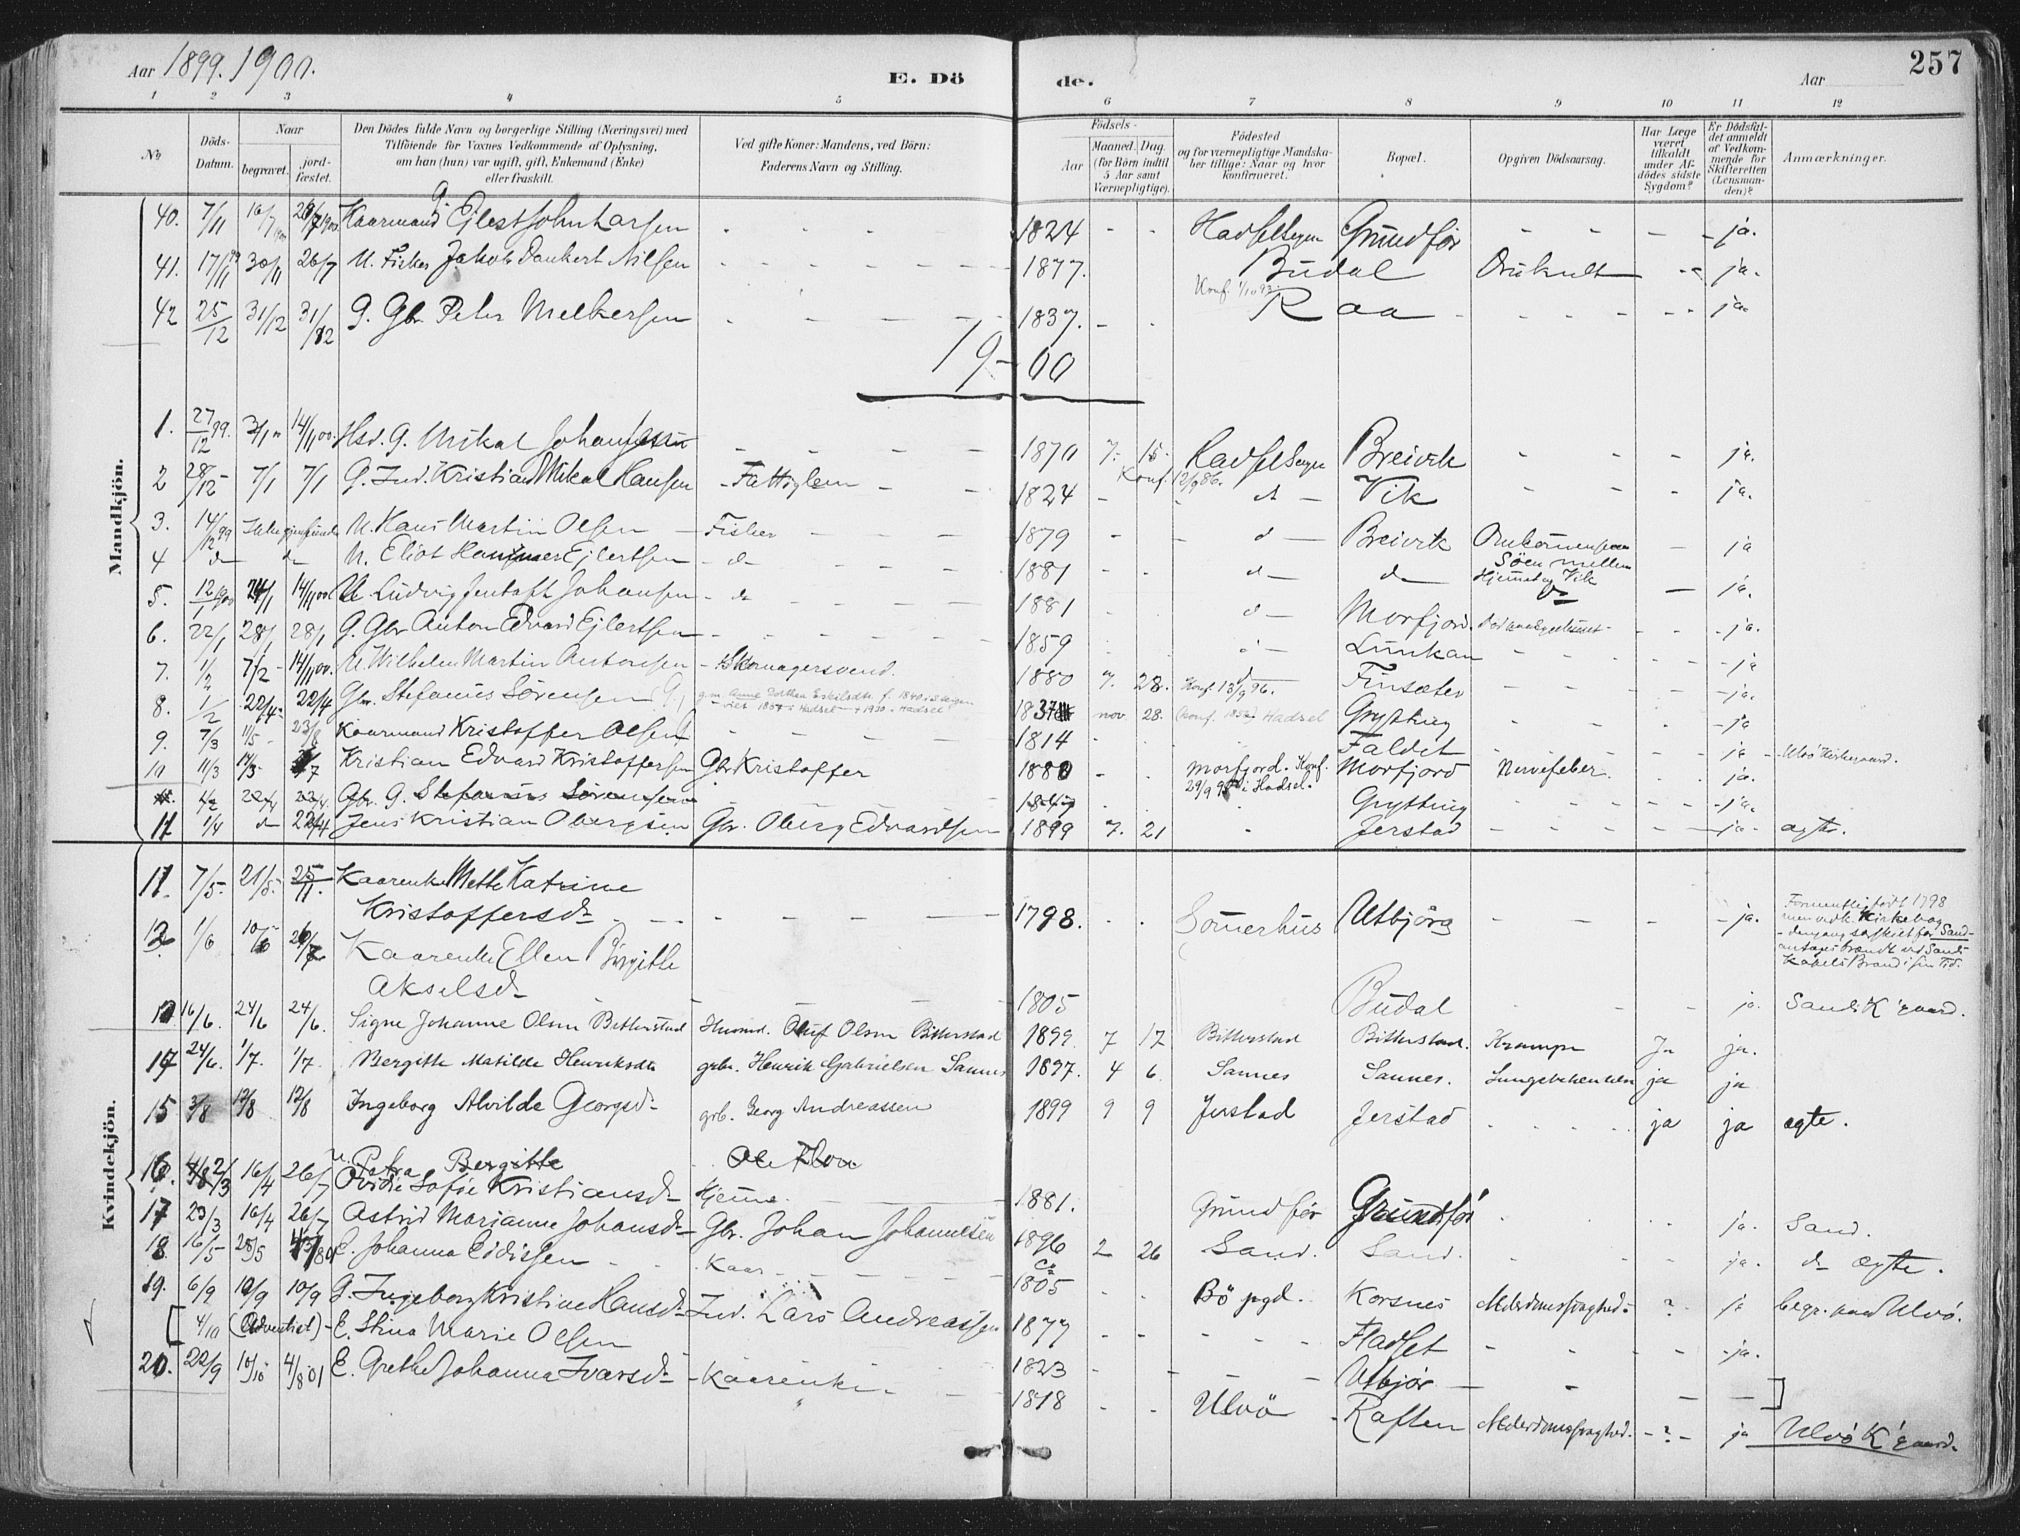 Aar 1899. 1900.
E. Dö de.
Aar
257
1 2 3 4 5 6 7 8 9 10 11 12
No
Döds-Datum.
Naar
begravet.
jord-fæstet.
Den Dödes fulde Navn og borgerlige Stilling (Næringsvei) med
Tilföiende for Voxnes Vedkommende af Oplysning,
om han (hun) var ugift, gift, Enkemand (Enke)
eller fraskilt.
Ved gifte Koner: Mandens, ved Börn:
Faderens Navn og Stilling.
Födsels-
Aar
Maaned. Dag.
(for Börn indtil
5 Aar samt
Værnepligtige).
Födested
og for værnepligtige Mandska-
ber tillige: Naar og hvor
konfirmeret.
Bopæl.
Opgiven Dödsaarsag.
Har Læge
været
tilkaldt
under Af-
dödes sidste
Sygdom?
Er Dödsfal-
det anmeldt
af Vedkom-
mende for
Skifteretten
(Lensman-
den)?
Anmærkninger.
Mandkjön.
40. 7/11 16/7 26/7 Kaarmand Ejlert John Larsen 1824 Hadsel Sogn Grundfør ja.
41. 17/11 30/11 26/7 U. Fisker Jakob Dankert Nilsen 1877. Budal Drukult ja.
Konf. 1/10 93.
42 25/12 31/12 31/12 G. Gbr. Peter Melkersen 1837. Raa ja.
19-00
1. 27/12 99. 3/1 14/11 00. G. Mikal Johan 1870 7. 15 Hadsel Sogn Breivik ja.
Konf. 12/9 86.
2 28/12 7/1 7/1 G. Ind. Kristian Mikal Hansen Fattiglem 1824 d Vik ja.
3. 14/12 99 U. Hans Martin Olsen Fisker 1879 d Breivik Omkommen paa ja
Søen mellem
4 d d U. Eliot Ejlertsen d 1881 d d Hjemmet og Vik ja.
5. 12/1 24/1 14/11 00. U. Ludvig Jentoft Johansen d 1881 d Morfjord ja.
6. 22/1 28/1 28/1 G. Gbr. Anton Edvard Ejlertsen 1859 Lunkan ja
7. 1/2 7/2 14/11 00. U. Wilhelm Martin Antonsen Skomagersvend. 1880 7. 28. Konf. 13/9 96. Finsæter ja
8. 1/2 22/4 22/4 Gbr. Stefanus Sørensen 1837 nov 28. Hadsel Grytting ja
9. 7/3 11/5 23/8 Kaarmand Kristoffer Olsen 1814 Faldet ja
10 11/3 14/3 7 Kristian Edvard Kristoffersen Gbr. Kristoffer 1880 Morfjord. Konf. Morfjord Nervefeber ja. Ulvö Kirkegaard.
29/9 95 i Hadsel.
1/2 22/4 23/4. Gbr. G. Stefanus Sørensen 1847 Grytting ja.
11 1/4 d 22/4 Jens Kristian Obergsen Gbr. Oberg Edvardsen 1899 7. 21 Jerstad ja. ægte.
Kvindekjön.
11. 7/5. 21/5 25/11. Kaarenke Mette Katrine
Kristoffersd. 1798. Sommerhus Utbjörg ja. Formentlig født 1798
12 1/6 10/6 26/7 Kaarenke Ellen Birgitte
Akselsd. 1805 Budal ja. Sands K'gaard.
13 16/6. 24/6 24/6. Signe Johanne Olsen Bitterstad Husmd. Oluf Olsen Bitterstad 1899. 7 17 Bitterstad Bitterstad. Krampe Ja ja.
14 24/6. 1/7. 1/7. Bergitte Matilde Henriksdtr gbr. Henrik Gabrielsen Sannes 1897. 4 6. Sannes Sannes. Lungebetændelse ja ja
15 3/8 12/8 12/8 Ingeborg Alvilde Georgsd. gbr. Georg Andreassen 1899 9 9 Jerstad Jerstad ja ja ægte.
16. 2/3 16/4 26/7 u. Petra Bergitte
Ovidie Sofie Kristiansd. Hjemme. 1881. Grundför Grundför ja. Sand.
17 23/3 16/4 26/7 Astrid Marianne Johansd. Gbr. Johan Johannesen 1896 2 26 Sand. Sand. ja. d ægte.
18 16/5 28/5 E. Johanna Eidissen Kaar Ca 1805 Bö pgd. Korsnes Alderdomssvaghed. ? ja begr. paa Ulvö.
19. 6/9 10/9 10/9 G. Ingeborg Kristine Hansd. Ind. Lars Andreassen 1877 Hadsel ja.
4/10 (Adventist) E. Stina Marie Olsen 1823 Utbjör
20. 22/9 10/10 4/8 01 E. Grethe Johanna Ivarsd. Kaarenke 1818 Ulvö Raften Alderdomssvaghed. ? ja Ulvö K'gaard.